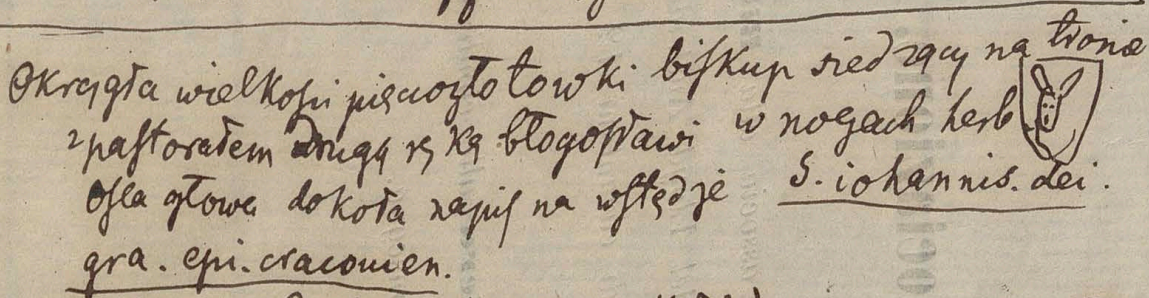 Okrągła wielkości pięciozłotowki biskup siedzący na tronie
z pastorałem drugą ręką błogosławi w nogach herb
osla głowa dokoła napis na wstędze S. iohannis. dei.
gra. epi. cracouien.